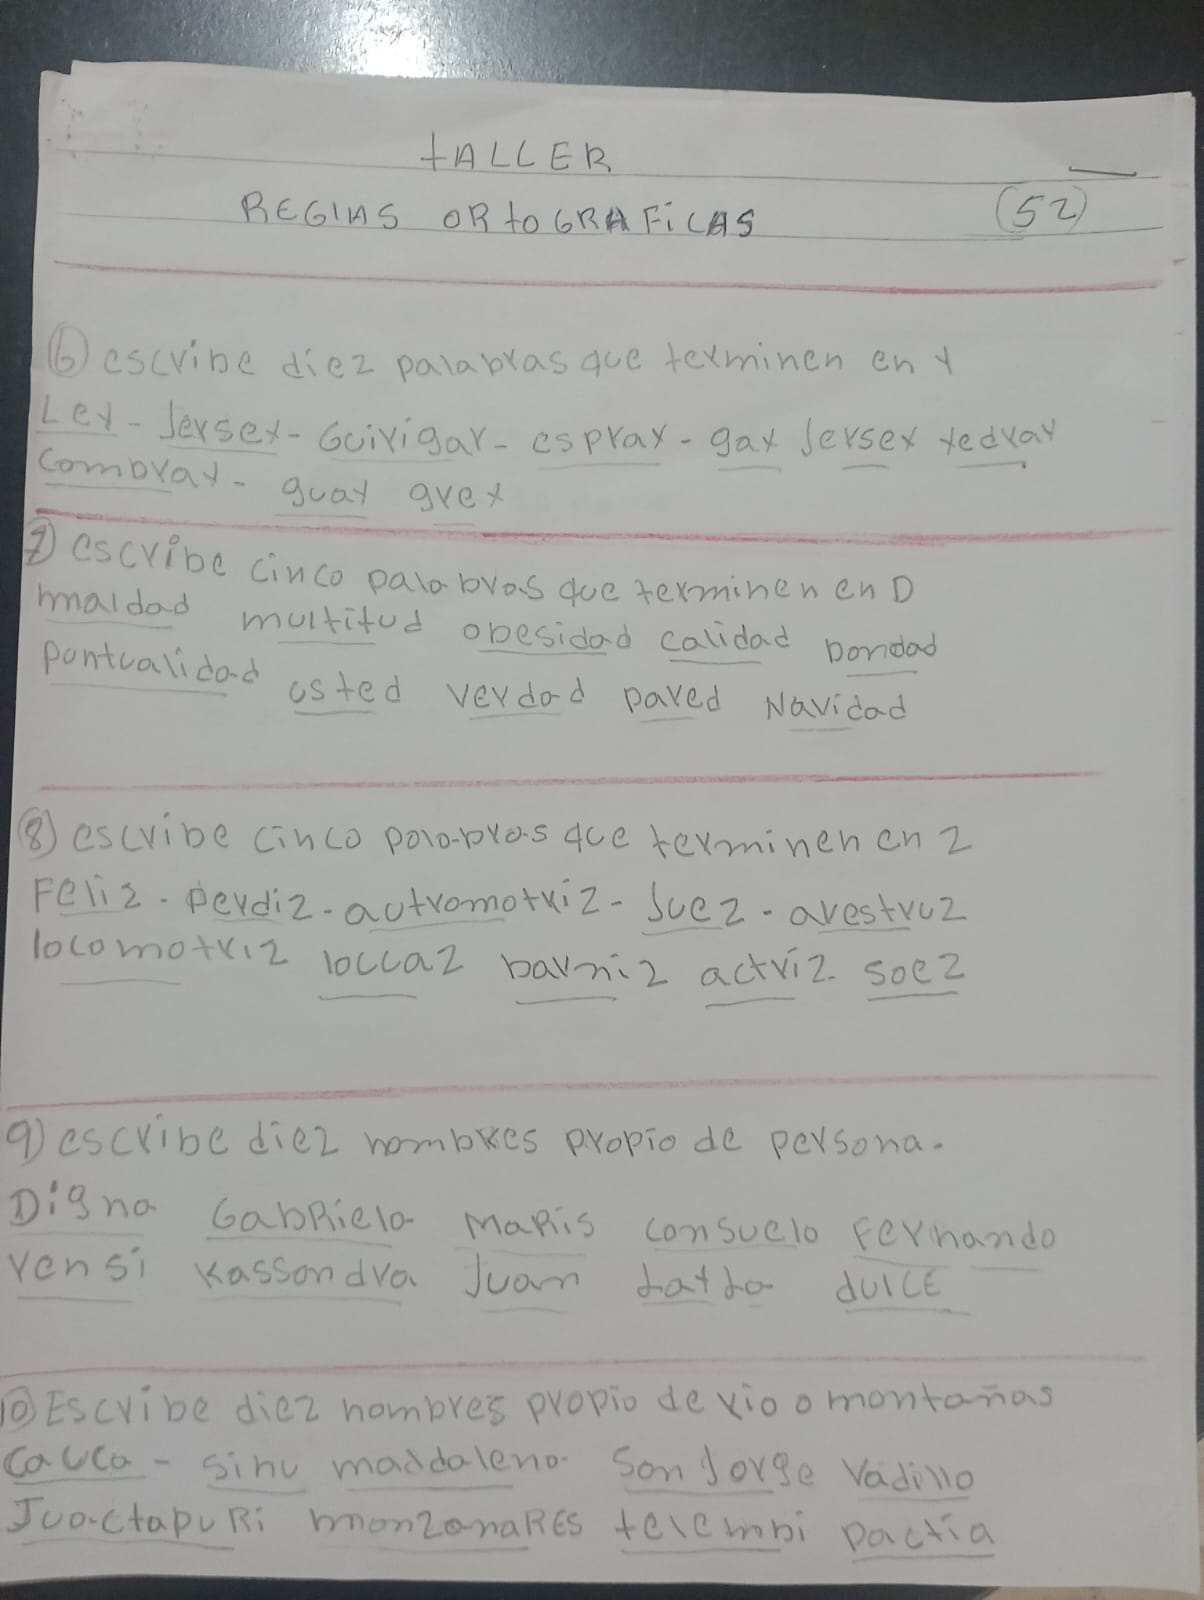 tALLER
REGlAS ORtOGRAFiCAS (52)
6) escribe diez palabras que terminen en y
Ley - Jersey - Guirigay - espray - gay Jersey yedray
Combray - guay grey
7) escribe cinco palabras que terminen en D
maldad multitud obesidad calidad bondad
puntualidad usted verdad pared Navidad
8) escribe cinco palabras que terminen en z
Feliz - perdiz - autromotriz - Juez - avestruz
locomotriz locuaz barniz actriz soez
9) escribe diez nombres propio de persona.
Digna GabRiela MaRis consuelo Fernando
Yensi Kassandra Juan tatta dulCE
10) Escribe diez nombres propio de rio o montañas
Cauca - sinu maddalena San Jorge Vadillo
JuactapuRi manzanaRES telembi pactia